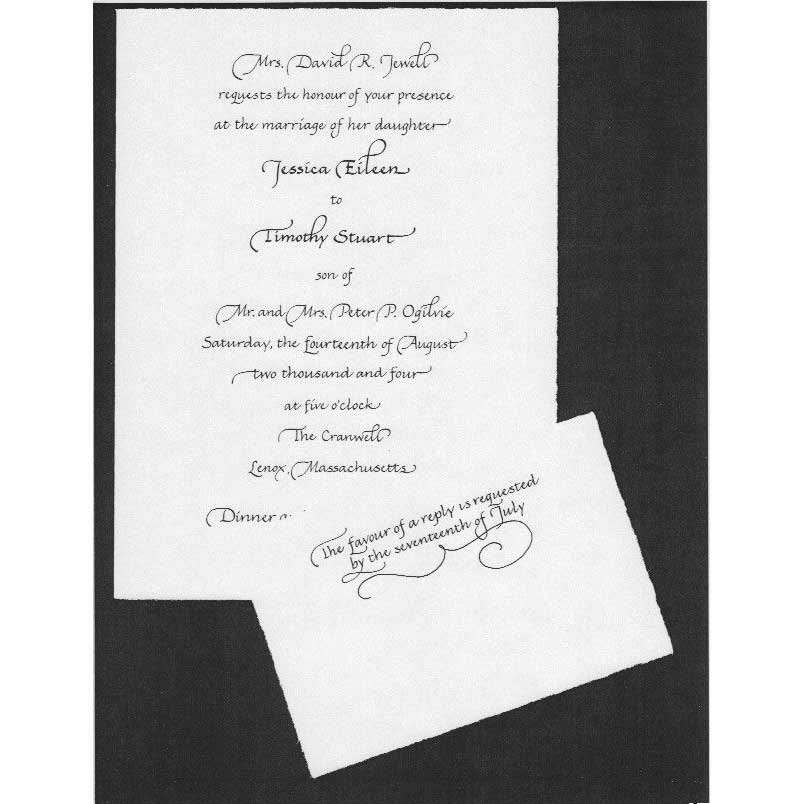 Mrs. David R. Jewell
requests the honour of your presence
at the marriage of her daughter
Jessica Eileen
to
Timothy Stuart
son of
Mr. and Mrs. Peter P. Ogilvie
Saturday, the fourteenth of August
two thousand and four
at five o'clock
The Cranwell
Lenox, Massachusetts
Dinner
The favour of a reply is requested
by the seventeenth of July